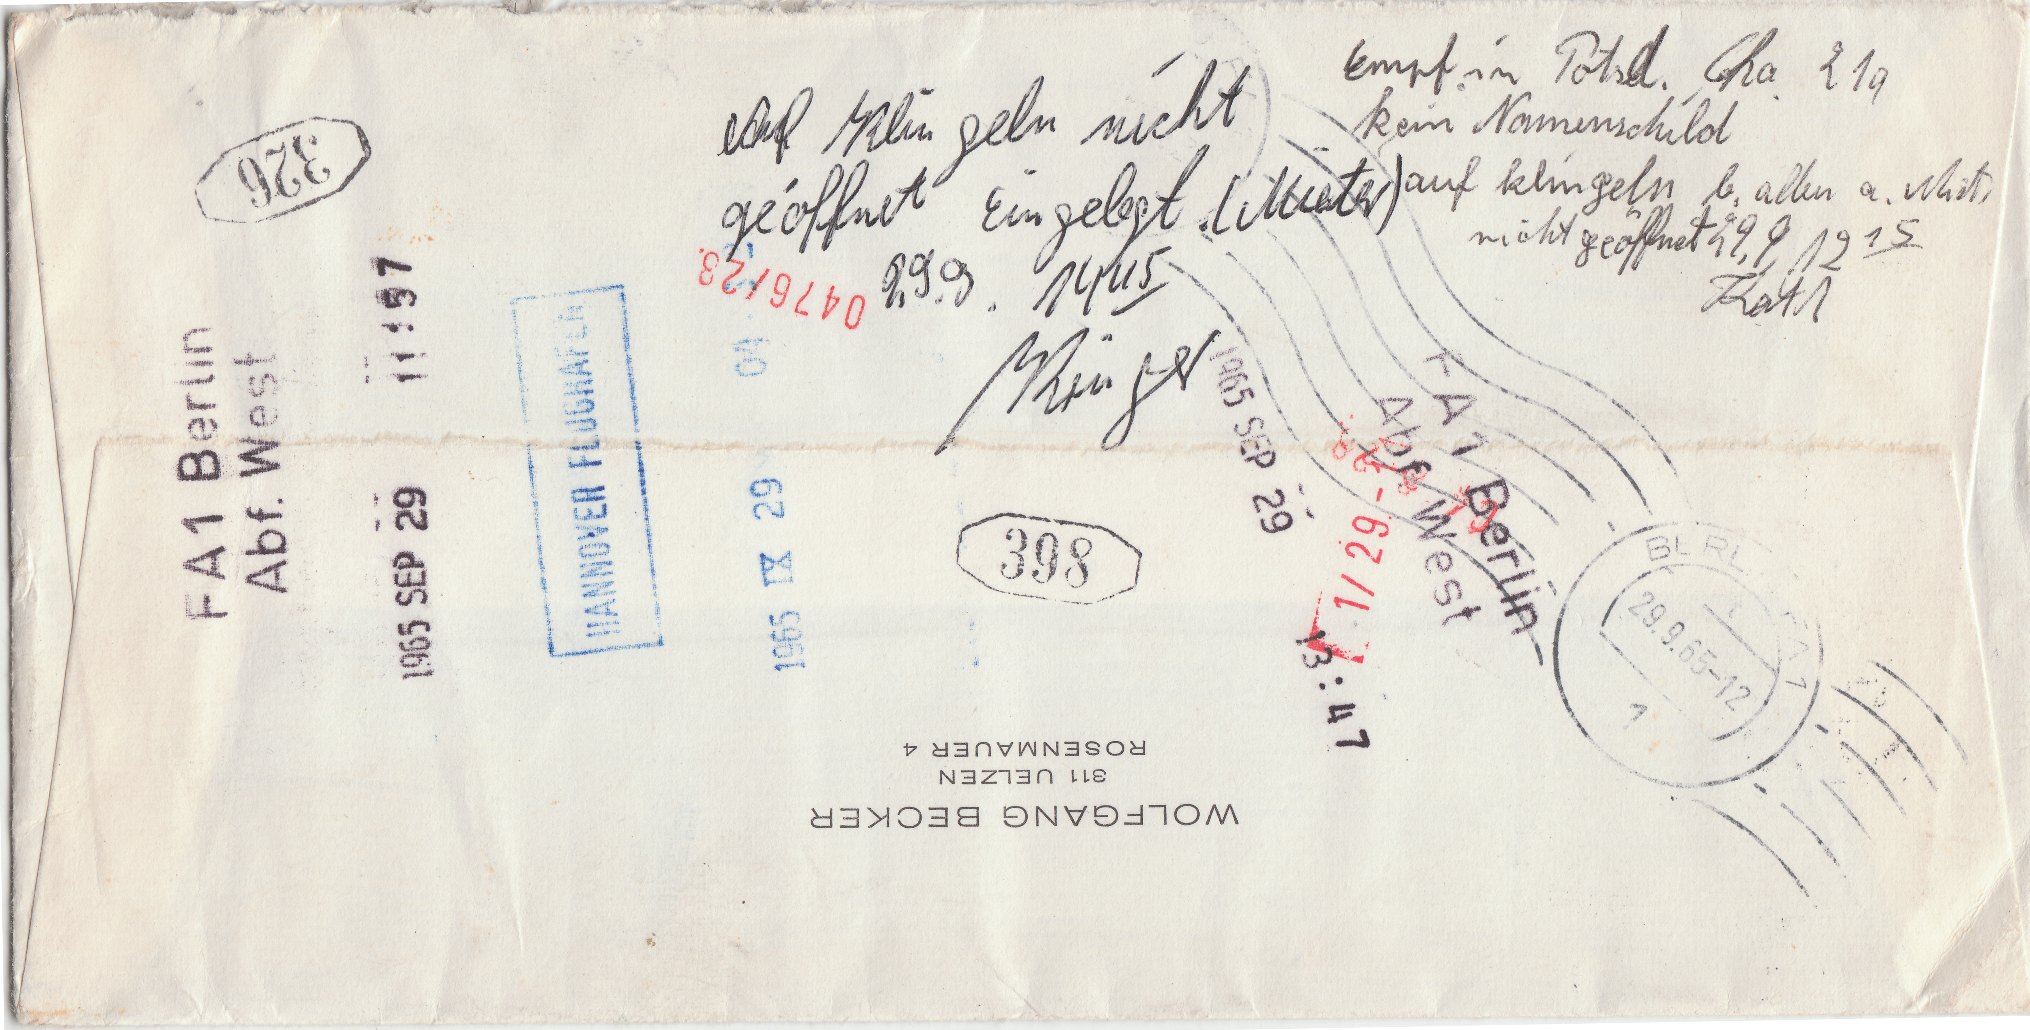 Empf. in Potsd. Cha. 21a
kein Namenschild
auf klingeln b. allen a. Miet.
nicht geöffnet 29.9. 12 15
Auf Klingeln nicht
geöffnet Eingelegt. (Mieter)
29.9. 14 45
326
0476/23.
FA1 Berlin
Abf. West
1965 SEP 29 11:57
HANNOVER FLUGHAFEN
1965 IX 29 04
398
1965 SEP 29 13:47
FA1 Berlin
Abf. West
1/29-
BERLIN
29.9.65-12
1
WOLFGANG BECKER
311 UELZEN
ROSENMAUER 4